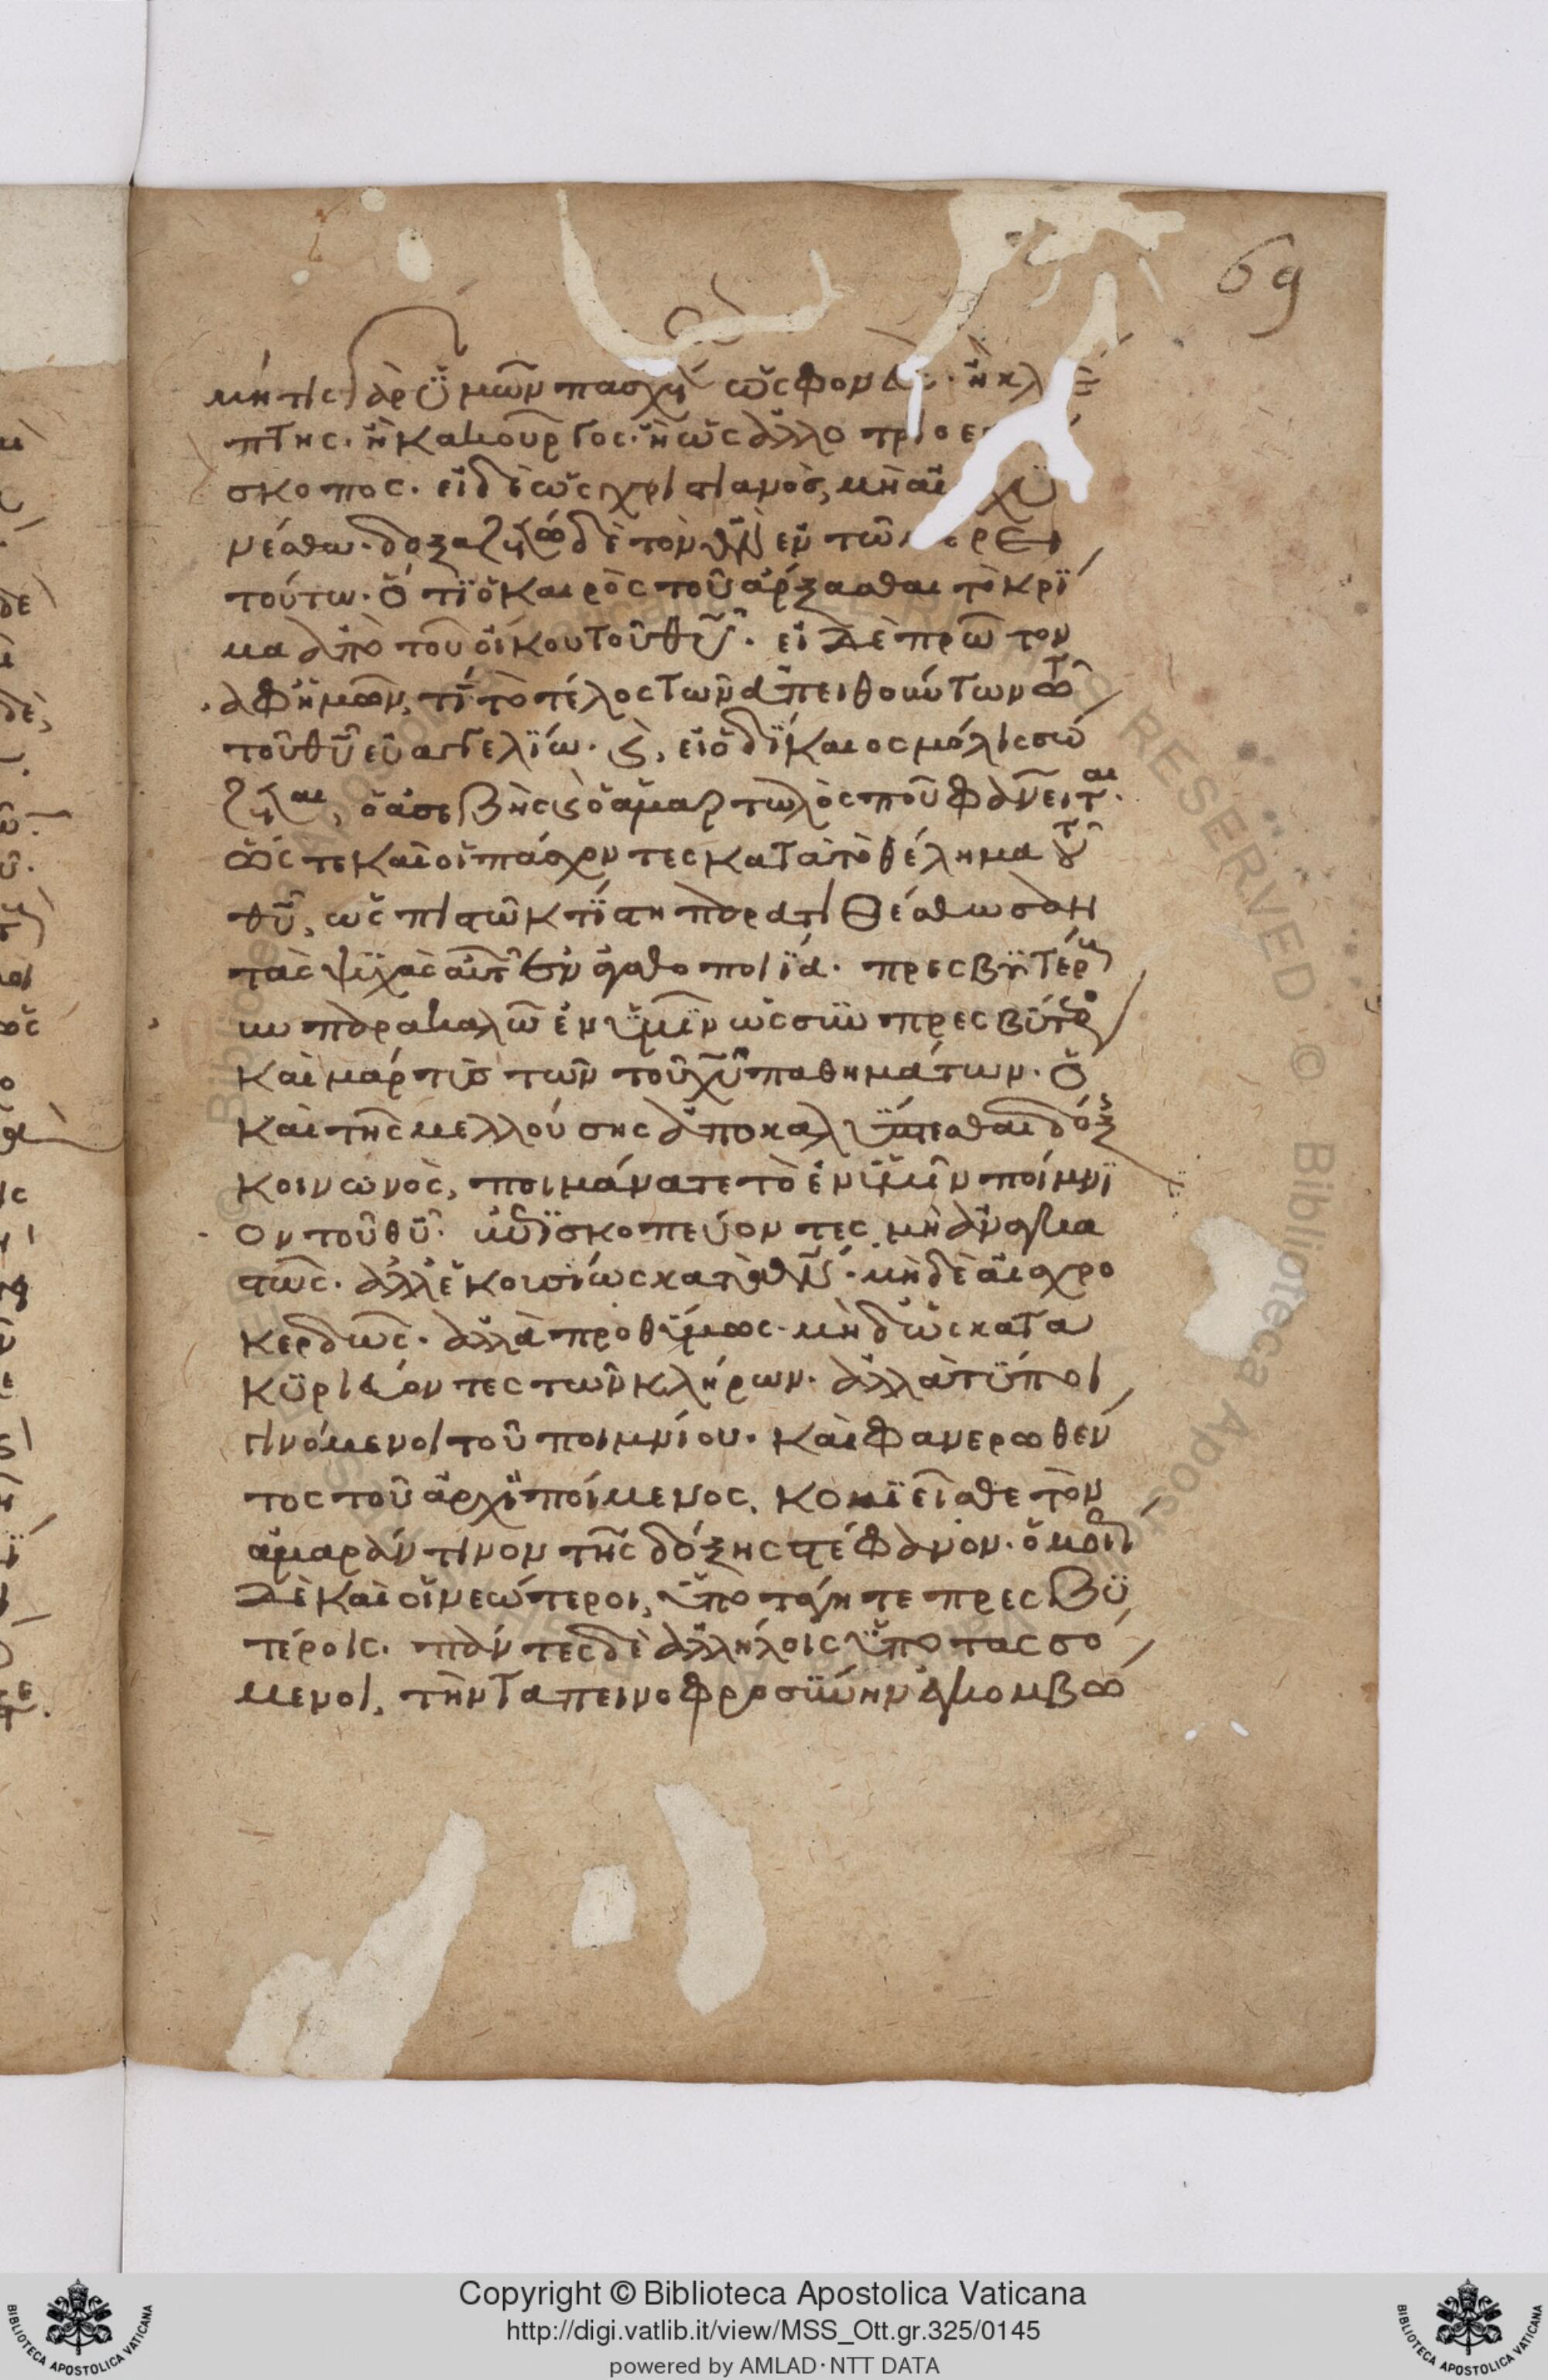 69
μή τις γὰρ ὑμῶν πασχέτω ὡς φονεὺς. ἢ κλέ
πτης. ἢ κακοῦργος. ἢ ὡς ἄλλο τριοε
σκοπος. εἰ δὲ ὡς χριστιανὸς, μὴ αἰσχυ
νέσθω. δοξαζέτω δὲ τὸν θν̅ ἐν τῶ μέρει
τούτω. ὅτι ὁ καιρὸς τοῦ ἄρξασθαι τὸ κρί
μα ἀπὸ τοῦ οἴκου τοῦ θυ̅. εἰ δὲ πρῶτον
ἀφ ἡμῶν, τί τὸ τέλος τῶν ἀπειθούντων τῶ
τοῦ θυ̅ εὐαγγελίω. ϗ, εἰ ὁ δίκαιος μόλις σώ
ζεται, ὁ ἀσεβὴς ϗ ὁ ἁμαρτωλὸς ποῦ φανεῖται.
ὥς τε καὶ οἱ πάσχοντες κατὰ τὸ θέλημα τοῦ
θυ̅, ὡς πιστῶ κτίστη παρατιθέσθωσαν
τὰς ψυχὰς αὐτῶν ἐν ἀγαθοποιΐα. πρεσβυτέρους
παρακαλῶ ἐν ὑμῖν ὡς συν πρεσβύτερος
καὶ μάρτυς τῶν τοῦ χυ̅ παθημάτων. ὁ
καὶ τῆς μελλούσης ἀποκαλύπτεσθαι δόξης
κοινωνὸς, ποιμάνατε τὸ ἐν ὑμῖν ποίμνι
ον τοῦ θυ̅. ἐπϊσκοπεύοντες μὴ ἀναγκα
στῶς. ἀλλ ἑκουσίως κατὰ θν̅. μὴ δὲ αἰσχρο
κερδῶς. ἀλλὰ προθύμως. μὴ δ ὡς κατα
κυριεύοντες τῶν κλήρων. ἀλλὰ τύποι
γινόμενοι τοῦ ποιμνίου. καὶ φανερωθέν
τος τοῦ ἀρχιποίμενος, κομιεῖσθε τὸν
ἀμαράντινον τῆς δόξης στέφανον. ὁμοίως
δὲ καὶ οἱ νεώτεροι, ὑποτάγητε πρεσβυ
τέροις. πάντες δὲ ἀλλήλοις ὑποτασσό
μενοι, τὴν ταπεινοφροσύνην ἐγκομβώ
Copyright © Biblioteca Apostolica Vaticana
http://digi.vatlib.it/view/MSS_Ott.gr.325/0145
powered by AMLAD·NTT DATA